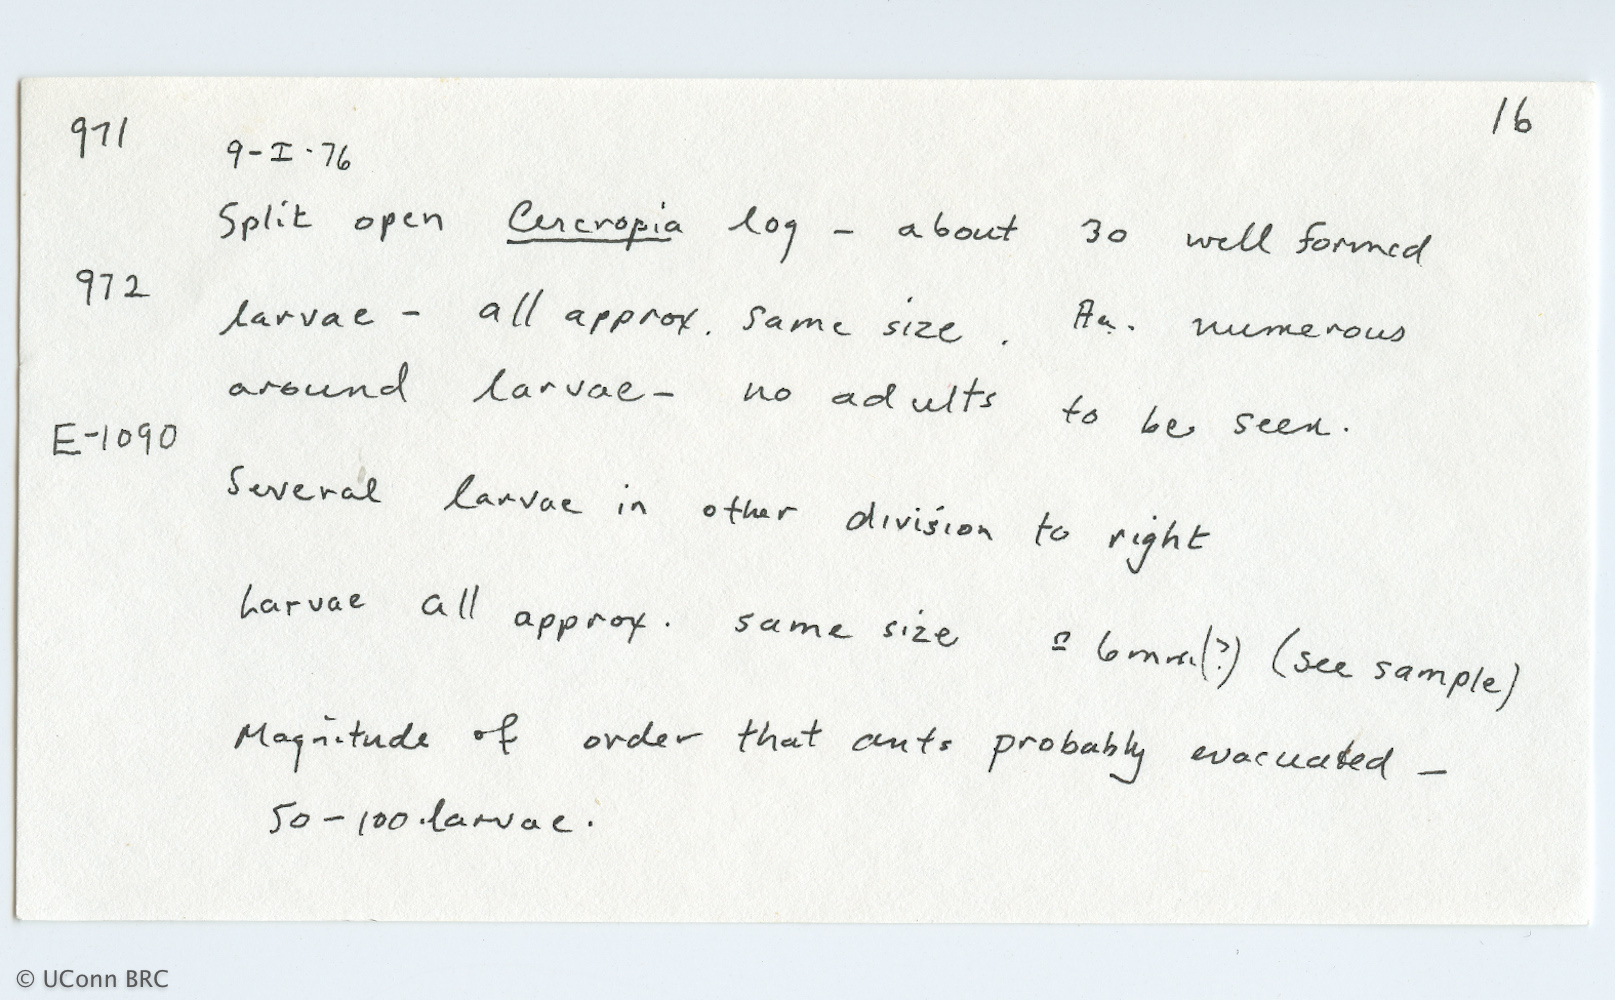 971
16
9-I-76
Split open Cercropia log - about 30 well formed
972
larvae - all approx. same size. numerous
around larvae - no adults to be seen.
E-1090
Several larvae in other division to right
Larvae all approx. same size = 6mm(?) (see sample)
Magnitude of order that ants probably evacuated -
50-100 larvae.
© UConn BRC